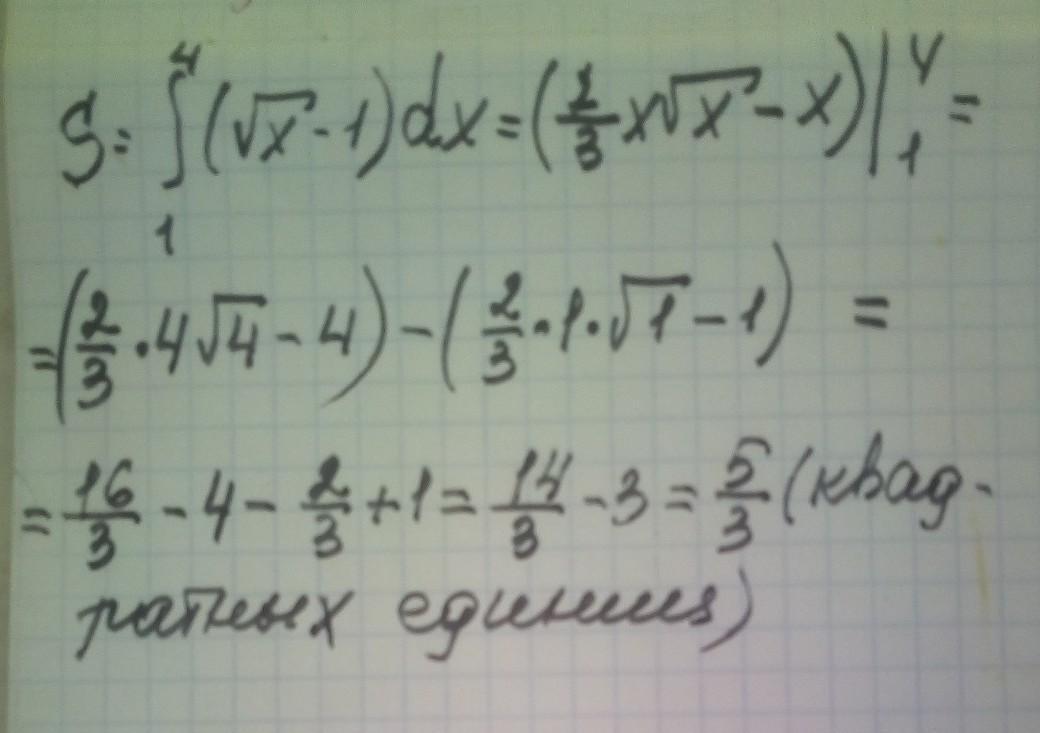 S = ∫₁⁴ (√x - 1) dx = (2/3 x√x - x) |₁⁴ =
= (2/3 · 4√4 - 4) - (2/3 · 1 · √1 - 1) =
= 16/3 - 4 - 2/3 + 1 = 14/3 - 3 = 5/3 (квад-
ратных единиц)